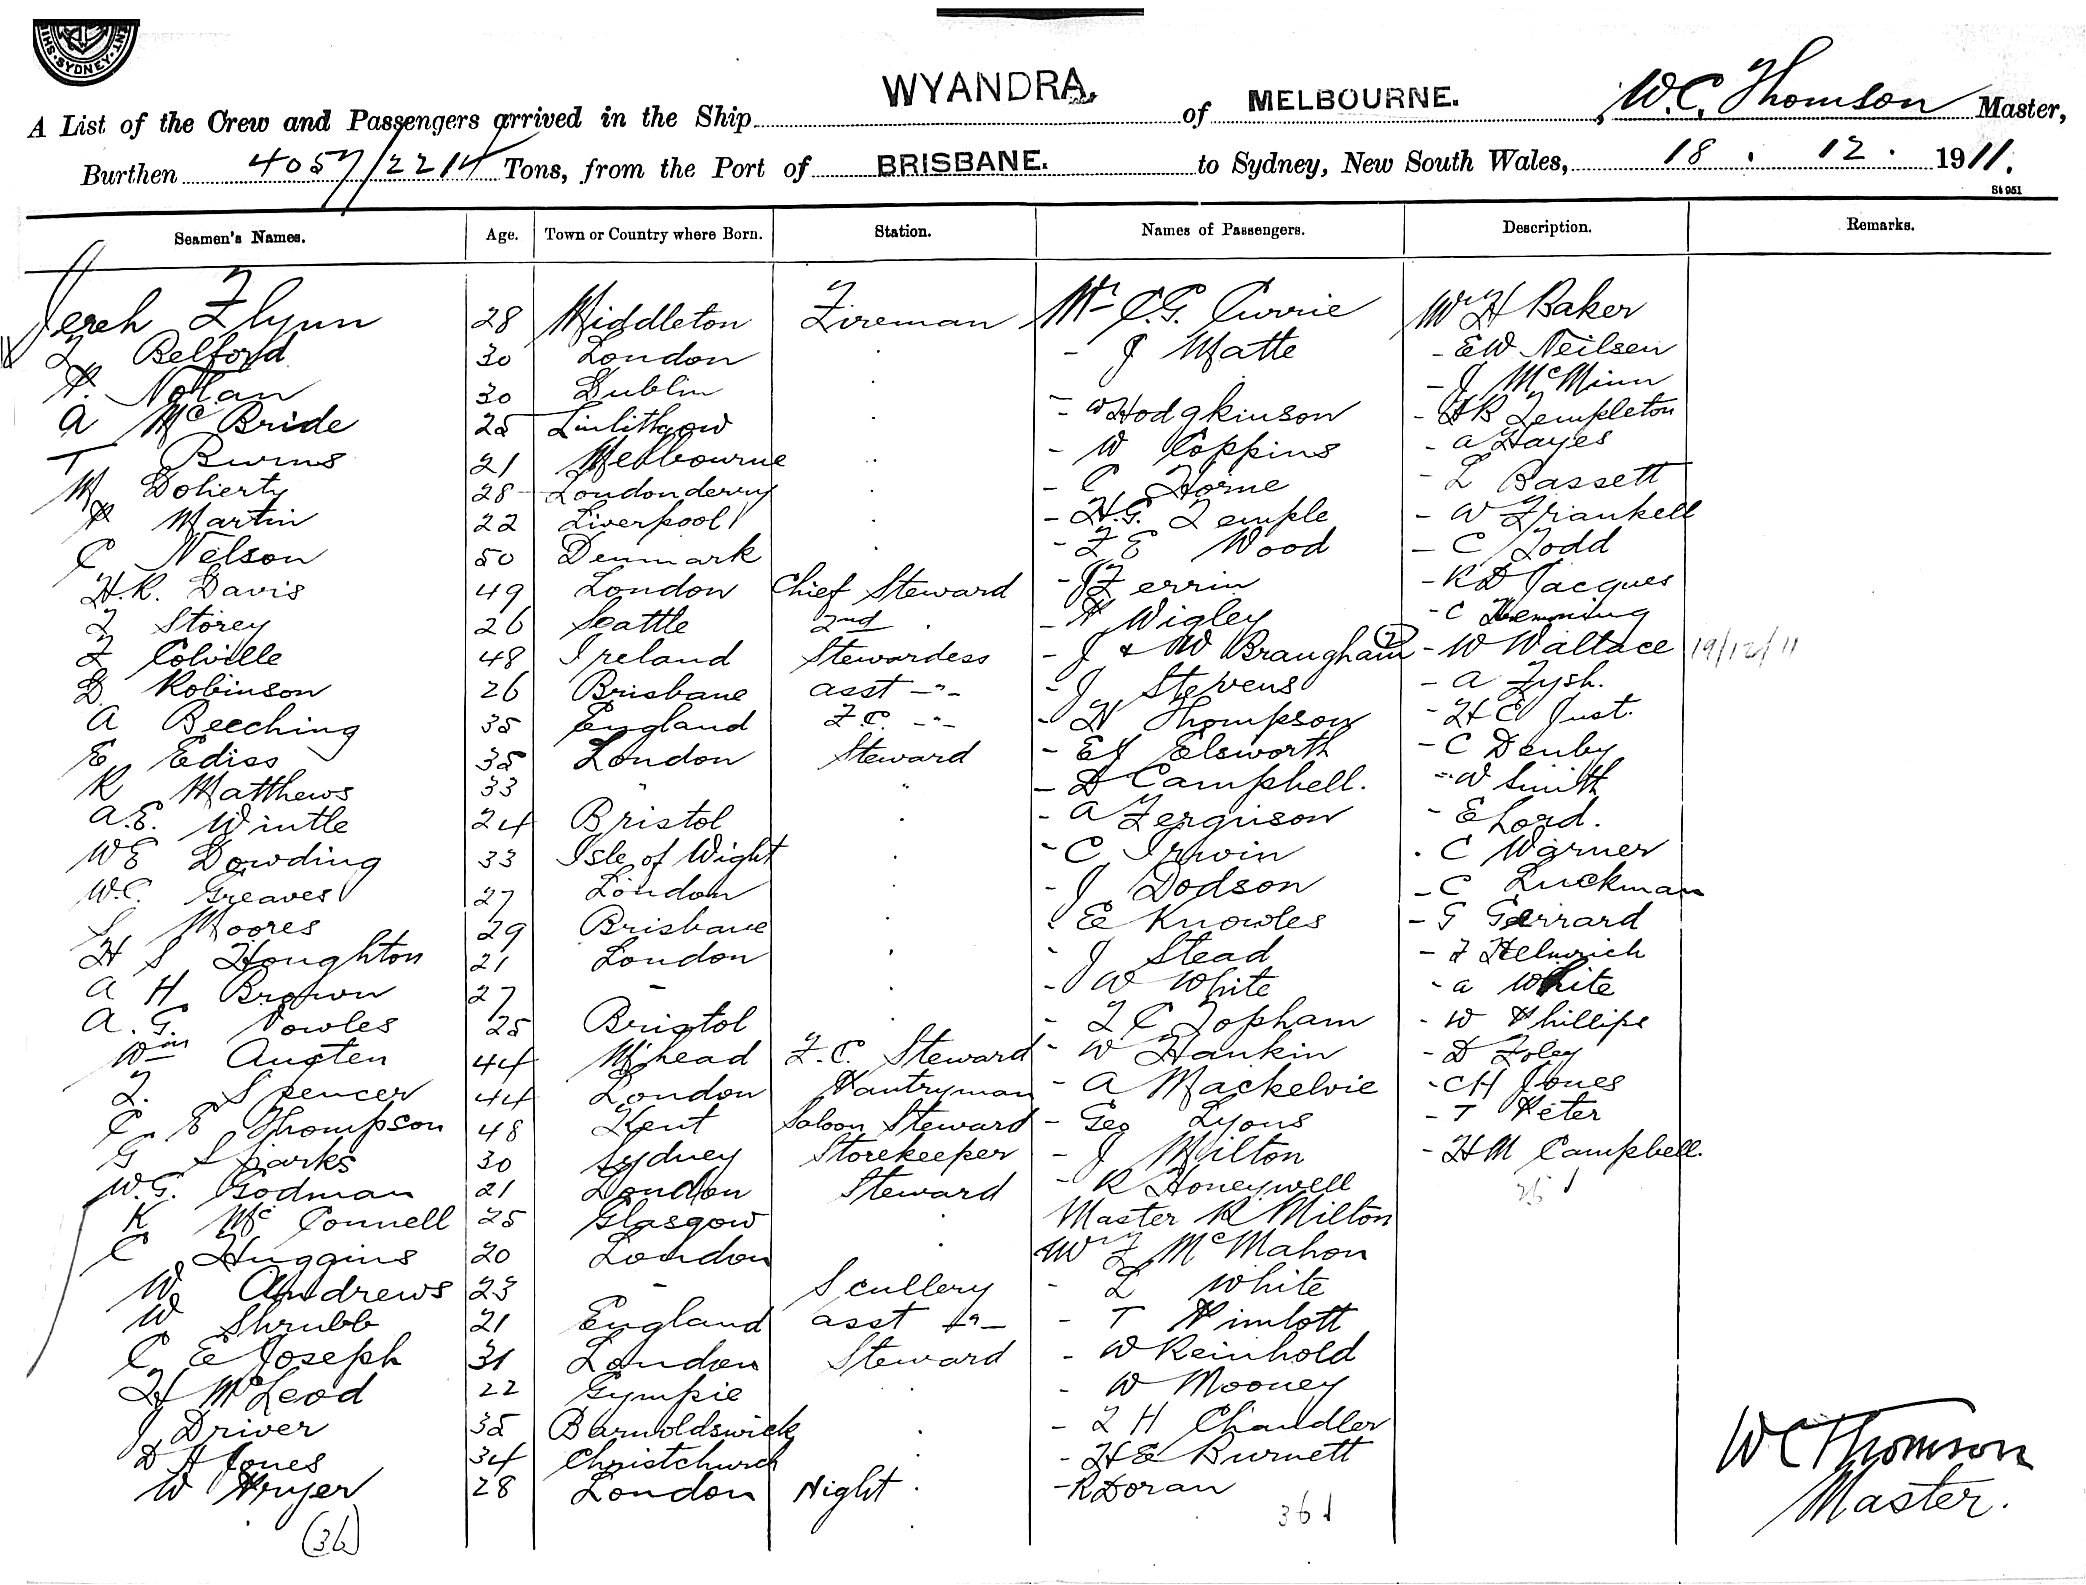 SYDNEY
WYANDRA.
A List of the Crew and Passengers arrived in the Ship WYANDRA, of MELBOURNE. W.C. Thomson Master,
Burthen 4057/2214 Tons, from the Port of BRISBANE. to Sydney, New South Wales, 18 . 12 . 1911.
St 951
Seamen's Names. Age. Town or Country where Born. Station. Names of Passengers. Description. Remarks.
Jereh Flynn 28 Middleton Fireman Mr C.G. Currie Mr H Baker
F Belford 30 London . - J Matte - EW Neilsen
P. Nolan 30 Dublin . - J McMinn
A McBride 25 Linlithgow . - W Hodgkinson - HB Templeton
T Burns 21 Melbourne .. - W Coppins - A Hayes
M Doherty 28 Londonderry . - C Horne - L Bassett
P Martin 22 Liverpool . - H.G. Temple - W Friankell
C Nelson 50 Denmark . - F E Wood - C Todd
H.R. Davis 49 London Chief Steward - J Ferrin - RD Jacques
F Storey 26 Seattle 2nd . - P Wigley - C Hemming
F Colville 48 Ireland Stewardess - J & W Braugham (2) - W Wallace 19/12/11
D Robinson 26 Brisbane asst -"- - J Stevens - A Fysh.
A Beeching 35 England F.C. -"- - H Thompson - H C Just.
E Ediss 35 London Steward - EJ Elsworth - C Denby
R Matthews 33 " " - D Campbell. - W Smith
A.E. Wintle 24 Bristol . - A Fergusson - E Lord.
WE Dowding 33 Isle of Wight . - C Irwin . C Warner
W.C. Greaves 27 London . - J Dodson - C Luckman
S Moores 29 Brisbane . - E Knowles - G Gerrard
H S Houghton 21 London . - J Stead - F Helmrich
A H Brown 27 - . - W White - A White
A.G. Vowles 25 Bristol . - F C Topham - W Phillips
Wm Austen 44 M'head F.C. Steward - W Hankin - D Foley
F. Spencer 44 London Pantryman - A Mackelvie - CH Jones
C E Thompson 48 Kent Saloon Steward - Geo Lyons - T Peter
G Sparks 30 Sydney Storekeeper - J Milton - HM Campbell.
W.G. Godman 21 London Steward - R Honeywell
K McConnell 25 Glasgow . Master R Milton
C Huggins 20 London . Mr F McMahon
W Andrews 23 - Scullery - L White
W Shrubb 21 England asst -"- - T Pimlott
C E Joseph 31 London Steward - W Reinhold
H McLeod 22 Gympie . - W Mooney
J Driver 35 Barnoldswick . - F H Chandler
D A Jones 34 Christchurch . - H E Burnett
W Pryer 28 London Night . - R Doran
(36) 36
W C Thomson
Master.